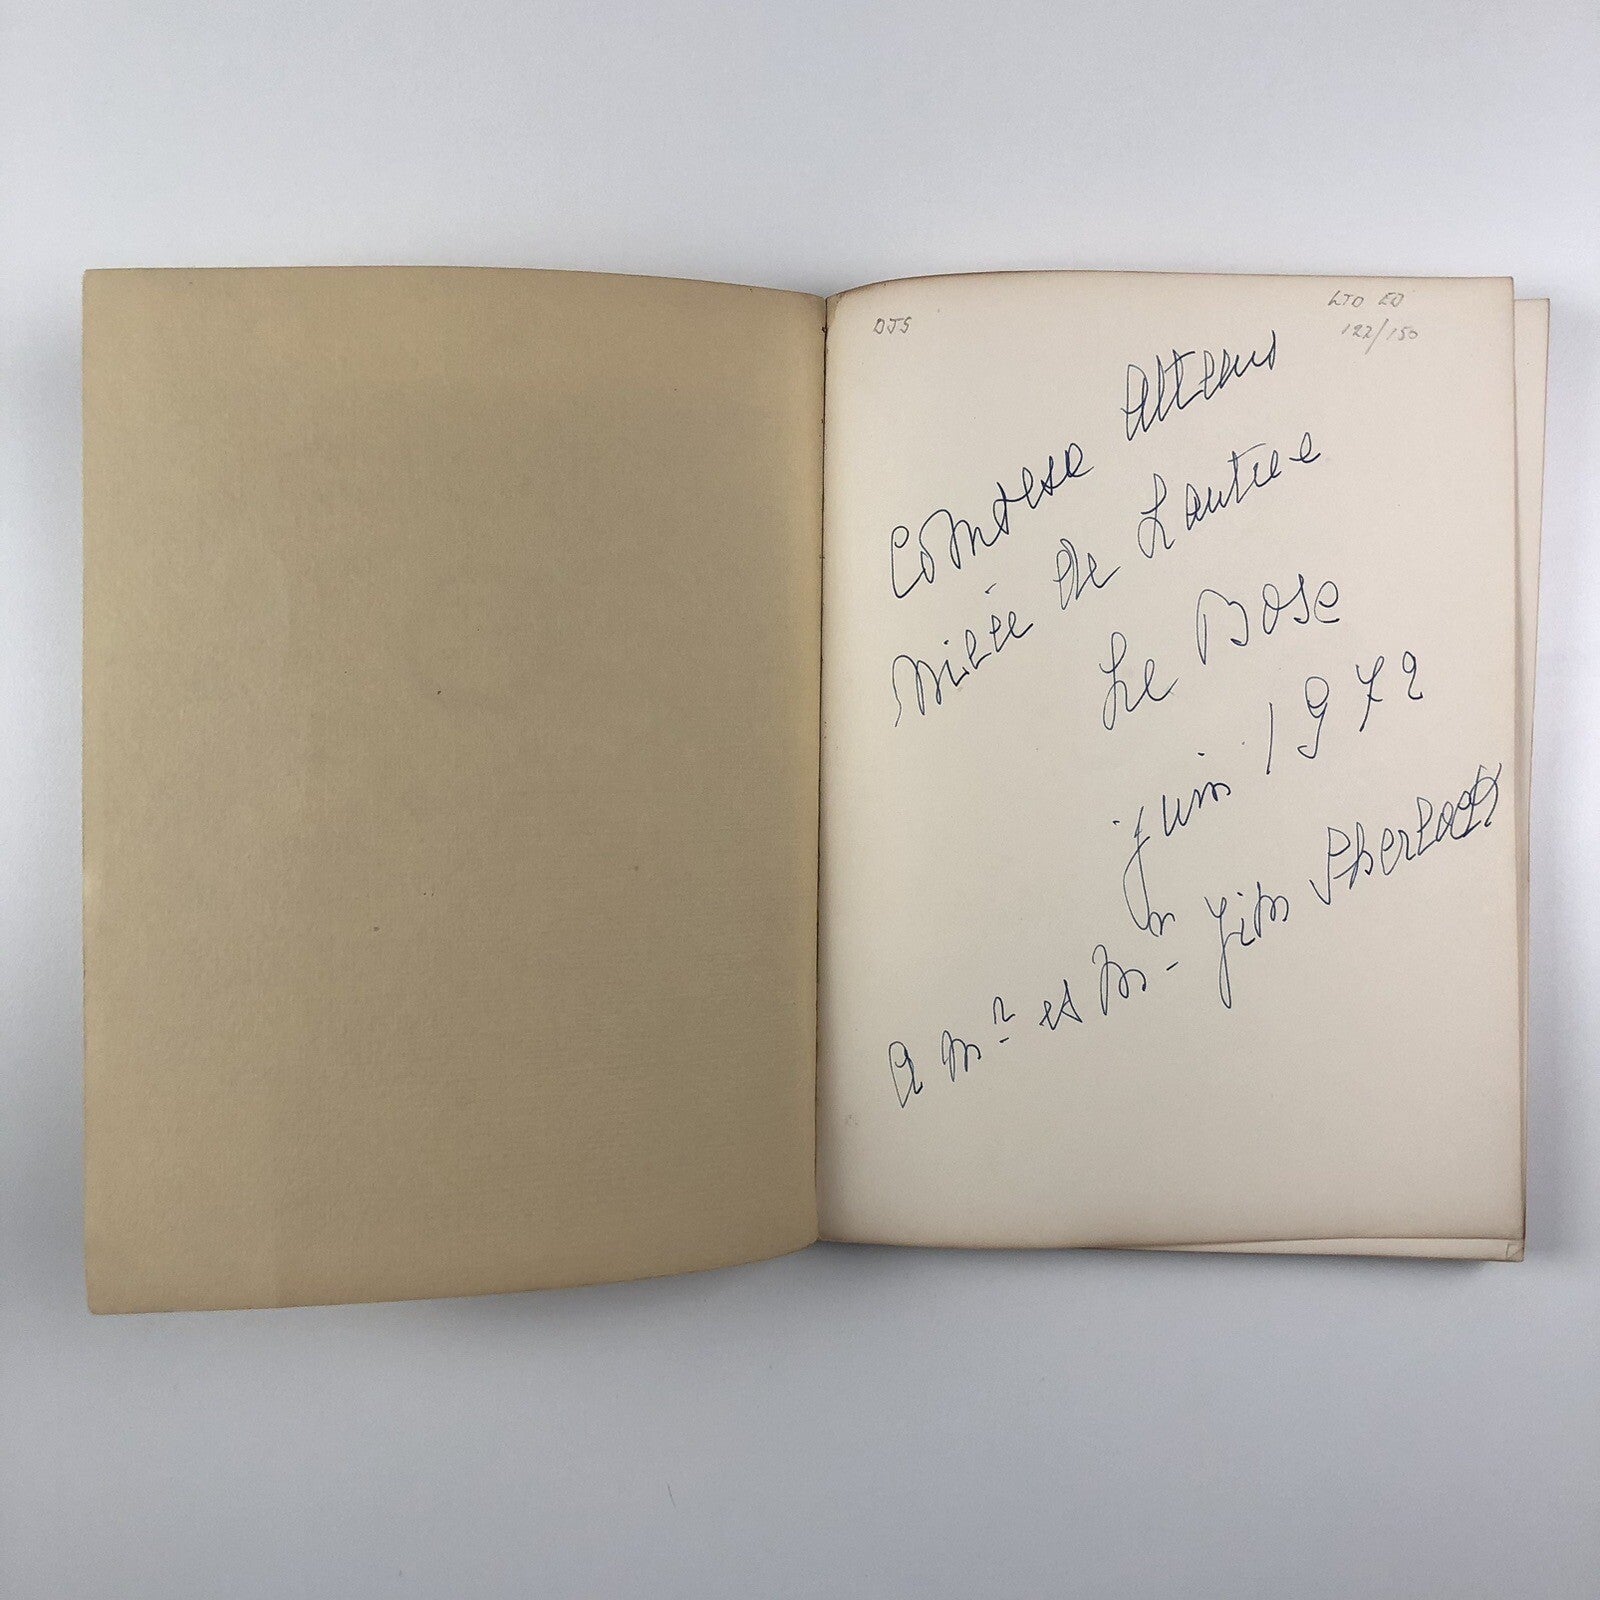 DJS
LTD ED
122/150
Comtesse Attems
Mitée de Lautrec
Le Bosc
juin 1972
a Mr et Mm - Jim Sherlock